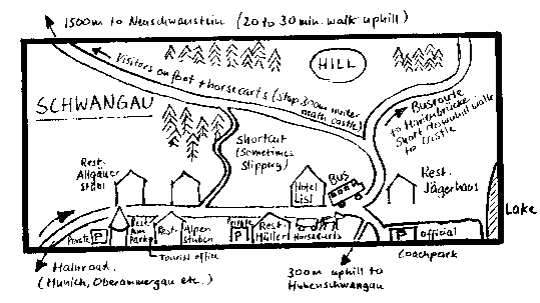 1500m to Neuschwanstein (20 to 30 min. walk uphill)
Visitors on foot + horsecarts (stop 300m under
neath castle)
HILL
SCHWANGAU
Shortcut
(Sometimes
Slippery)
Busroute
to Marienbrücke
Short downhill walk
to castle
Rest.
Allgäuer
Stübl
Hotel
Lisl
Bus
Rest.
Jägerhaus
Lake
Private P
Rest.
Am
Park
Rest.
Alpen
Stuben
Private
P
Rest.
Müller
Horsecarts
P Official
Coachpark
Tourist office
Mainroad.
(Munich, Oberammergau etc.)
300m uphill to
Hohenschwangau